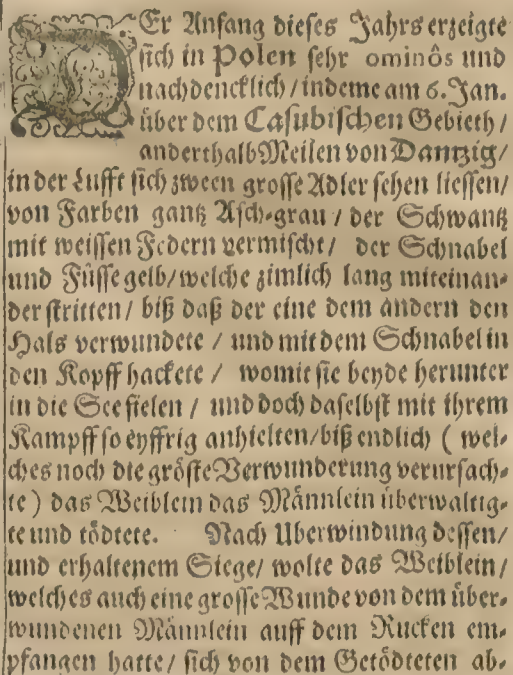 DEr Anfang dieses Jahrs erzeigte
sich in Polen sehr ominôs und
nachdencklich / indeme am 6. Jan.
über dem Casubischen Gebieth /
anderthalb Meilen von Dantzig /
in der Lufft sich zween grosse Adler sehen liessen /
von Farben gantz Asch-grau / der Schwantz
mit weissen Federn vermischt / der Schnabel
und Füsse gelb / welche zimlich lang miteinan-
der stritten / biß daß der eine dem andern den
Hals verwundete / und mit dem Schnabel in
den Kopff hackete / womit sie beyde herunter
in die See fielen / und doch daselbst mit ihrem
Kampff so eyffrig anhielten / biß endlich ( wel-
ches noch die gröste Verwunderung verursach-
te ) das Weiblein das Männlein überwaltig-
te und tödtete. Nach Uberwindung dessen /
und erhaltenem Siege / wolte das Weiblein /
welches auch eine grosse Wunde von dem über-
wundenen Männlein auff dem Rucken em-
pfangen hatte / sich von dem Getödteten ab-